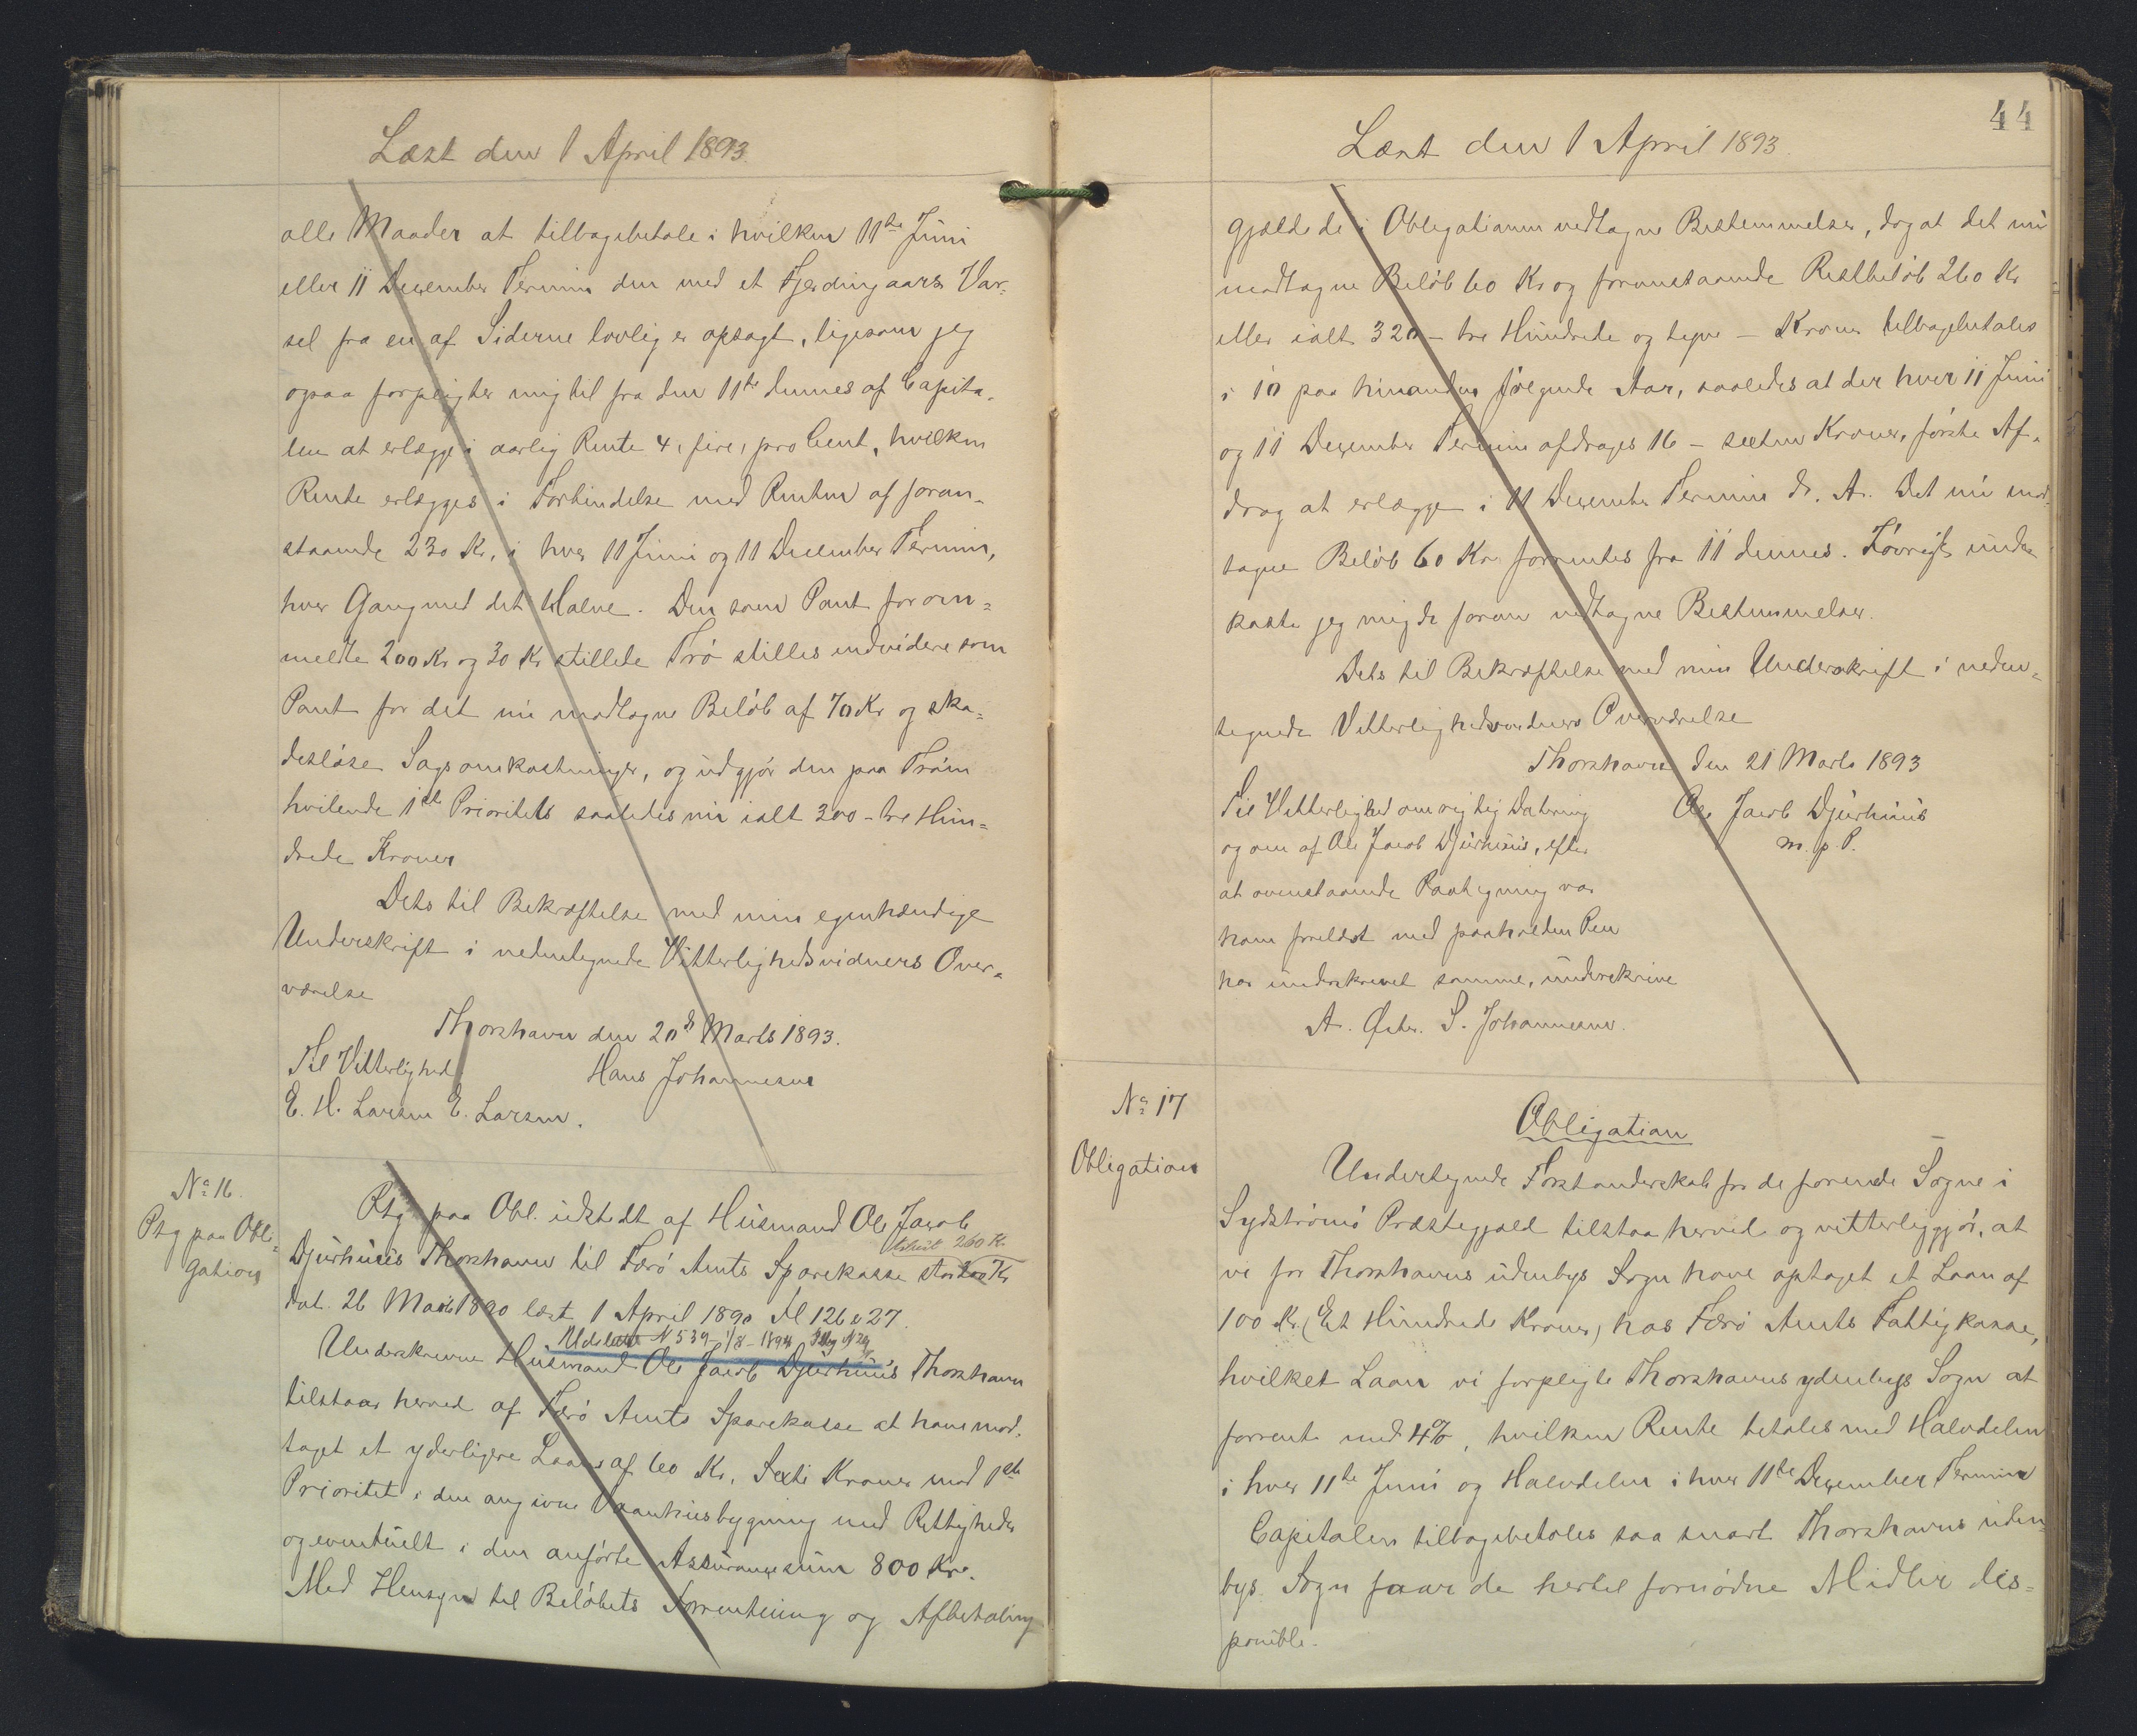 Læst den 1 April 1893.
alle Maader at tilbagebetale i hvilken 11te Juni
eller 11 December Termin den med et Fjerdingaars Var-
sel fra en af Siderne lovlig er opsagt, ligesom jeg
ogsaa forpligter mig til fra den 11te dennes af Capita-
len at erlægge i aarlig Rente 4, fire, pro Cent, hvilken
Rente erlægges i Forbindelse med Renten af foran-
staaende 230 Kr, i hver 11 Juni og 11 December Termin,
hver Gang med det Halve. Den som Pant for om-
meldte 200 Kr og 30 Kr stillede Trö stilles endvidere som
Pant for det nu modtagne Beløb af 70 Kr og ska-
desløse Sagsomkostninger, og udgjør den paa Tröen
hvilende 1ste Prioritets saaledes nu ialt 300 - tre Hun-
drede Kroner
Dets til Bekræftelse med min egenhændige
Underskrift i nedentegnede Vitterlighedsvidners Over-
værelse
Thorshavn den 20de Marts 1893.
Til Vitterlighed
Hans Johannesen
E. H. Larsen E. Larsen.
No 16.
Ptg paa Obli-
gation
Ptg paa Obl. udstedt af Husmand Ole Jacob
260 Kr.
Djurhuus Thorshavn til Færø Amts Sparekasse stor Kr
dat. 26 Marts 1890 læst 1 April 1890 Sl 126 & 27.
Udslettet N 539 - 1/8 - 1894
Underskrevne Husmand Ole Jacob Djurhuus Thorshavn
tilstaar herved af Færø Amts Sparekasse at have mod-
taget et yderligere Laans af 60 Kr. Sexti Kroner mod 1ste
Prioritet i den angivne Vaanhusbygning med Rettigheder
og eventuelt i den anførte Assurancesum 800 Kr.
Med Hensyn til Beløbets Forrentning og Afbetaling
44
Læst den 1 April 1893.
gjælde de i Obligationen vedtagne Bestemmelser, dog at det nu
modtagne Beløb 60 Kr og foranstaaende Restbeløb 260 Kr
eller ialt 320 - tre Hundrede og tyve - Kroner tilbagebetales
i 10 paa hinanden følgende Aar, saaledes at der hver 11 Juni
og 11 December Termin afdrages 16 - sexten Kroner, første Af-
drag at erlægge i 11 December Termin d. A. Det nu mod-
tagne Beløb 60 Kr forrentes fra 11 dennes. Iøvrigt under
kaste jeg mig de foran vedtagne Bestemmelser.
Dets til Bekræftelse med min Underskrift i neden-
tegnede Vitterlighedsvidners Overværelse
Thorshavn den 21 Marts 1893
Til Vitterlighed om rigtig Datering
Ole Jacob Djurhuus
og om af Ole Jacob Djurhuus, efter
m. p. P.
at ovenstaaende Paategning var
ham forelæst med paaholden Pen
har underskrevet samme, underskrive
A. S. Johannesen.
No 17
Obligation
Obligation
Undertegnede Forstanderskab for de forenede Sogne i
Sydstrømø Præstegjæld tilstaa herved og vitterliggjør, at
vi for Thorshavns udenbys Sogn have optaget et Laan af
100 Kr. (Et Hundrede Kroner) hos Færø Amts Fattigkasse,
hvilket Laan vi forpligte Thorshavns ydenbys Sogn at
forrente med 4%, hvilken Rente betales med Halvdelen
i hver 11te Juni og Halvdelen i hver 11te December Termin
Capitalen tilbagebetales saa snart Thorshavns uden-
bys Sogn faar de hertil fornødne Midler dis-
ponible.